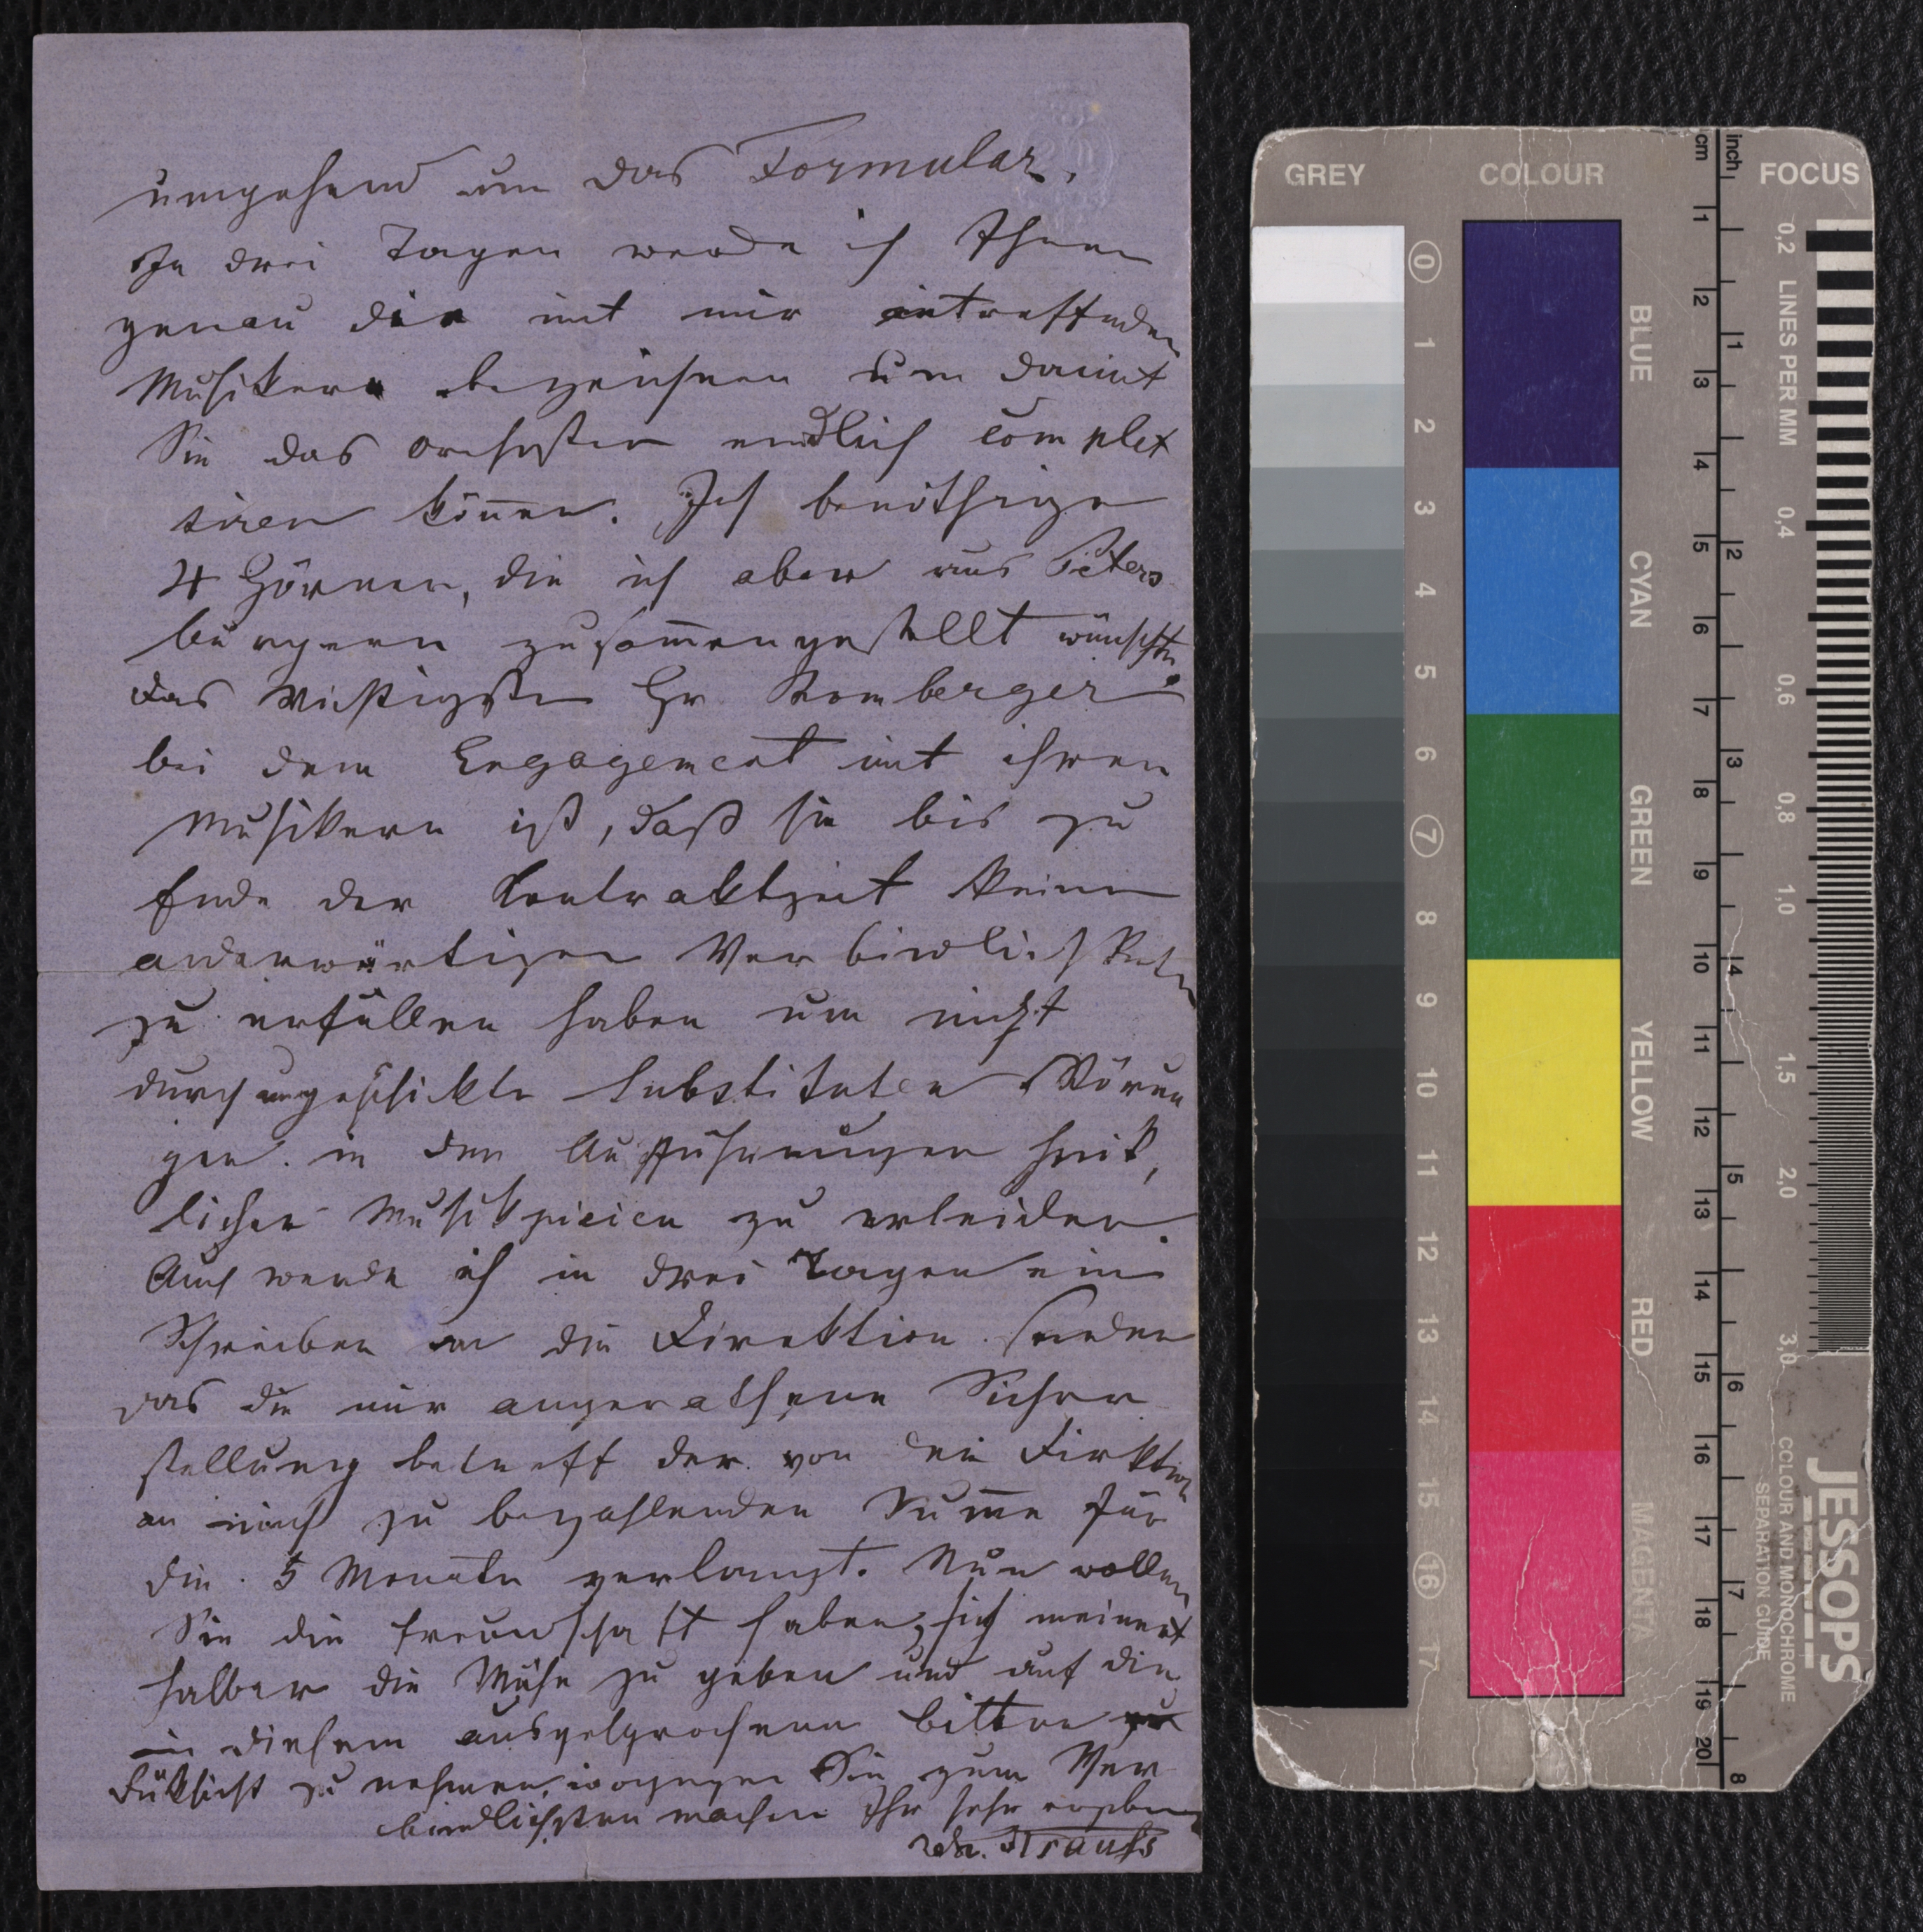 umgehend um das Formular.
In drei Tagen werde ich Ihnen
genau die mit mir eintreffenden
Musiker bezeichnen um damit
Sie das Orchester endlich complet
tiren können. Ich benöthige
4 Hörner, die ich aber aus Peters
burgern zusammengestellt wünschte
das Wichtigste Hr Romberger
bei dem Engagement mit ihren
Musikern ist, daß sie bis zu
Ende der Kontraktzeit keine
anderwärtigen Verbindlichkeiten
zu erfüllen haben um nicht
durch ungeschickte Substituten Störun
gen in den Aufführungen heik,
licher Musikpieicen zu erleiden.
Auch werde ich in drei Tagen ein
Schreiben an die Direktion senden
das die mir angerathene Sicher
stellung betreff der von der Direktion
an mich zu bezahlenden Summe für
die 5 Monate verlangt. Nun wollen
Sie die Freundschaft haben, sich meinet
halber die Mühe zu geben und auf die
in diesem ausgesprochene bitte
Rüksicht zu nehmen, wogegen Sie zum Ver
bindlichsten machen Ihr sehr ergeben
Joh. Strauss
GREY
COLOUR
FOCUS
cm
inch
0
1
2
3
4
5
6
7
8
9
10
11
12
13
14
15
16
17
BLUE
CYAN
GREEN
YELLOW
RED
MAGENTA
1
2
3
4
5
6
7
8
9
10
11
12
13
14
15
16
17
18
19
20
1
2
3
4
5
6
7
8
0,2 LINES PER MM
0,4
0,6
0,8
1,0
1,5
2,0
3,0
JESSOPS
COLOUR AND MONOCHROME
SEPARATION GUIDE